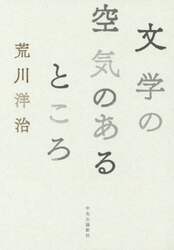 文学の
空気のある
ところ
荒川洋治
中央公論新社